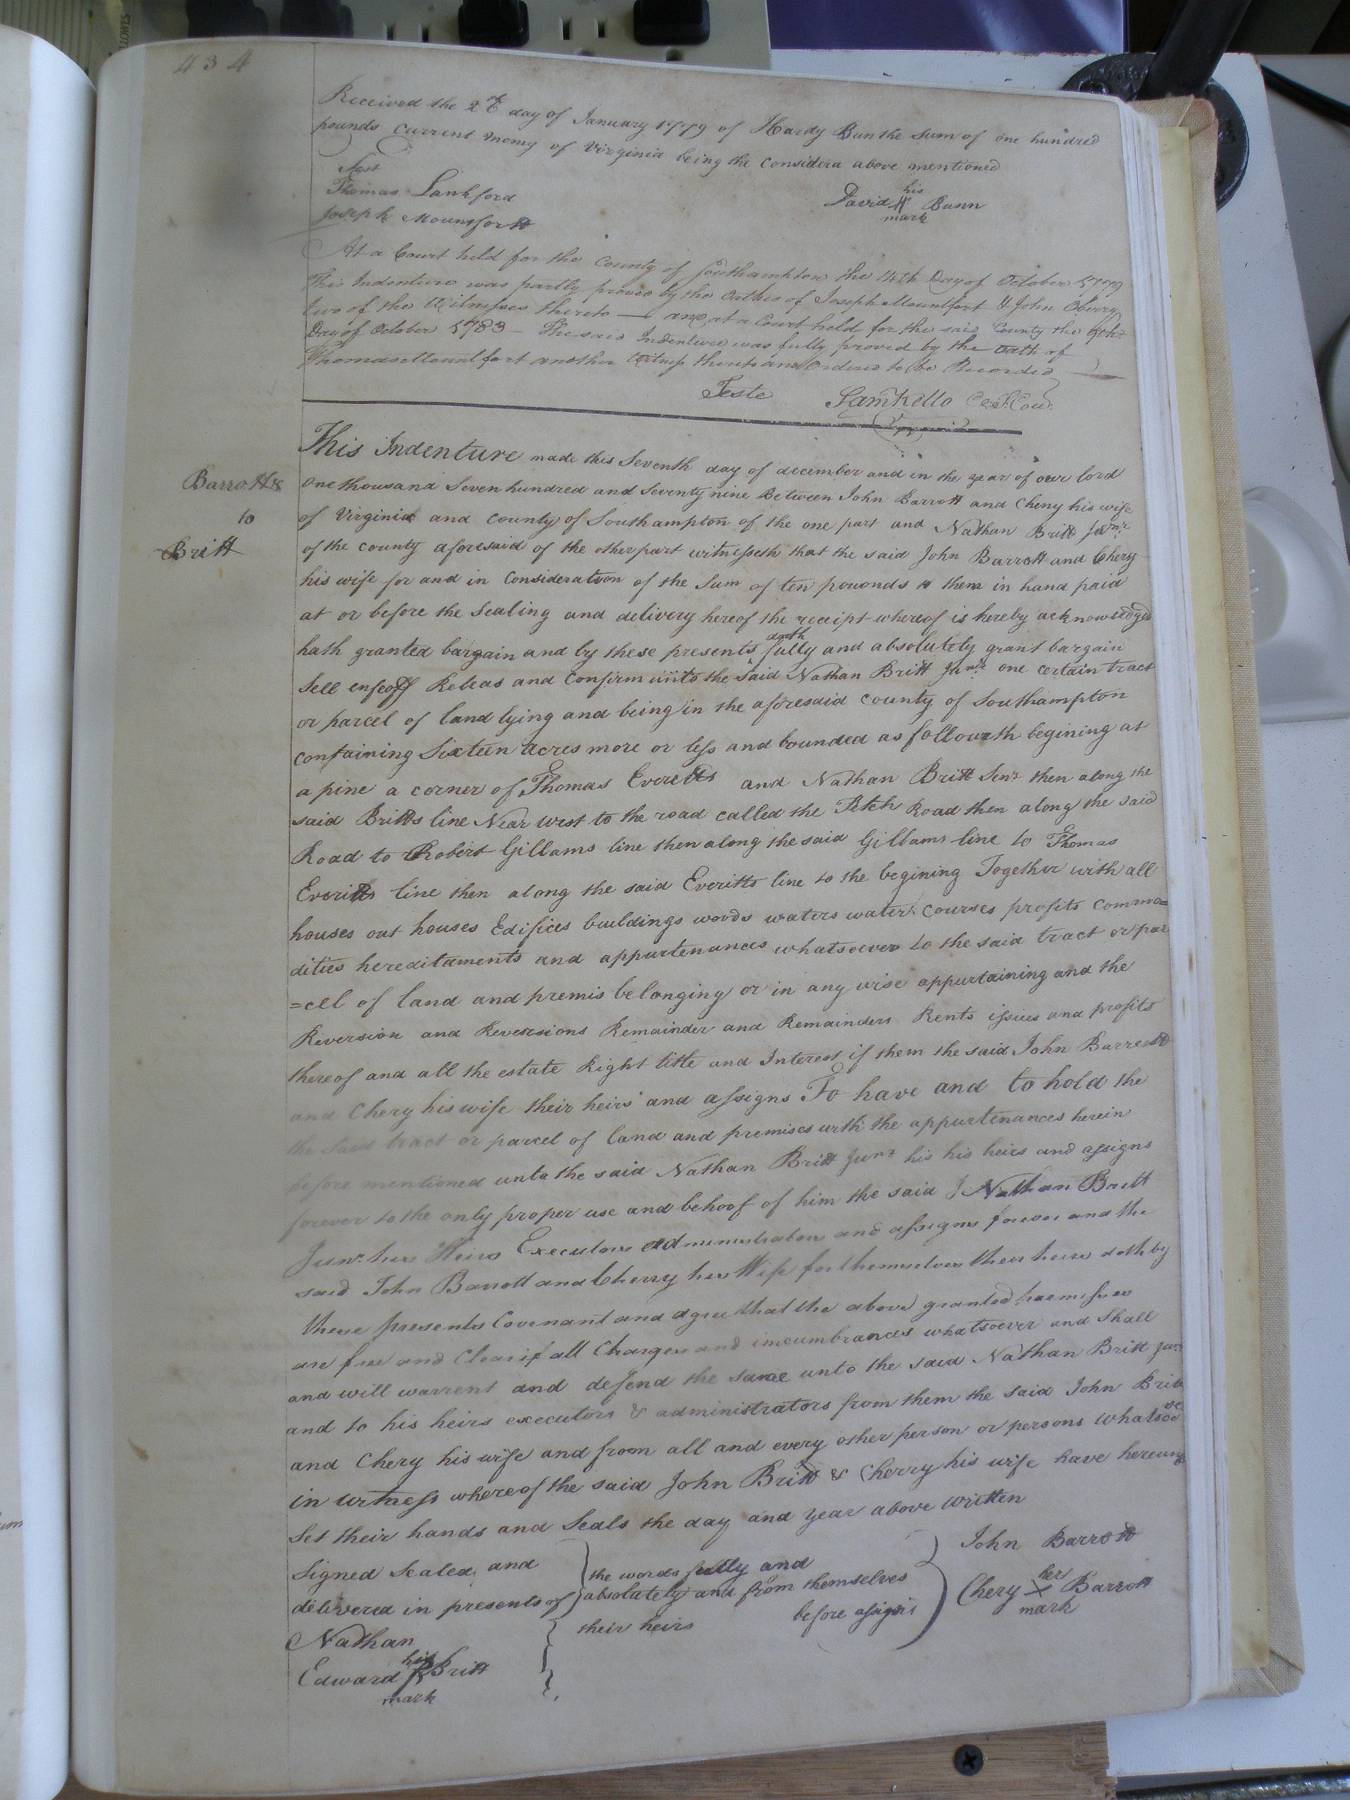 434
Received the 2d day of January 1779 of Hardy Bun the Sum of one hundred
pounds Current mony of Virginia being the Considera above mentioned
Test
Thomas Lankford
Joseph Mountfortt
his
David H Bunn
mark
At a Court held for the County of Southampton the 14th Day of October 1779
This Indenture was partly proved by the Oathes of Joseph Mountfort & John Oberry
two of the Witnesses thereto — and at a Court held for the said County the 9th
Day of October 1783 — The said Indenture was fully proved by the oath of
Thomas Mountfort another Witness thereto and Ordered to be Recorded
Teste Saml Kello C S Cou
This Indenture made this Seventh day of december and in the year of our lord
Barrott &
to
Britt
one thousand Seven hundred and Seventy nine Between John Barrott and Chery his wife
of Virginia and County of Southampton of the one part and Nathan Britt Junr
of the County aforesaid of the other part witnesseth that the said John Barrott and Chery
his wife for and in Consideration of the Sum of ten pouonds to them in hand paid
at or before the Sealing and delivery hereof the receipt whereof is hereby acknowledged
hath granted bargain and by these presents doth fully and absolutely grant bargain
Sell enfeoff Releas and Confirm unto the said Nathan Britt Junr one certain tract
or parcel of land lying and being in the aforesaid County of Southampton
containing Sixteen acres more or less and bounded as followeth begining at
a pine a corner of Thomas Everitts and Nathan Britt Senr then along the
said Britts line Near west to the road called the Road then along the said
Road to Robert Gillams line then along the said Gillams line to Thomas
Everitts line then along the said Everitts line to the begining Together with all
houses out houses Edifices buildings woods waters water courses profits commo=
dities hereditaments and appurtenances whatsoever to the said tract or par
=cel of land and premis belonging or in any wise appurtaining and the
Reversion and Reversions Remainder and Remainders Rents issues and profits
thereof and all the estate Right title and Interest if them the said John Barrott
and Chery his wife their heirs and assigns To have and to hold the
the said tract or parcel of land and premises with the appurtenances herein
before mentioned unto the said Nathan Britt Junr his his heirs and assigns
forever to the only proper use and behoof of him the said J Nathan Britt
Junr his Heirs Executors Administrators and assigns forever and the
said John Barrott and Cherry his Wife for themselves their heirs doth by
these presents Covenant and agree that the above granted premisses
are free and Clear if all Charges and incumbrances whatsoever and Shall
and will warrent and defend the same unto the said Nathan Britt Junr
and to his heirs executors & administrators from them the said John Britt
and Chery his wife and from all and every other person or persons whatsoe
in witness whereof the said John Britt & Cherry his wife have hereun
Set their hands and Seals the day and year above written
Signed Sealed and
delivered in presents of
the words fully and
absolutely and from themselves
their heirs before assigns
John Barrott
her
Chery X Barrott
mark
Nathan
his
Edward Britt
mark